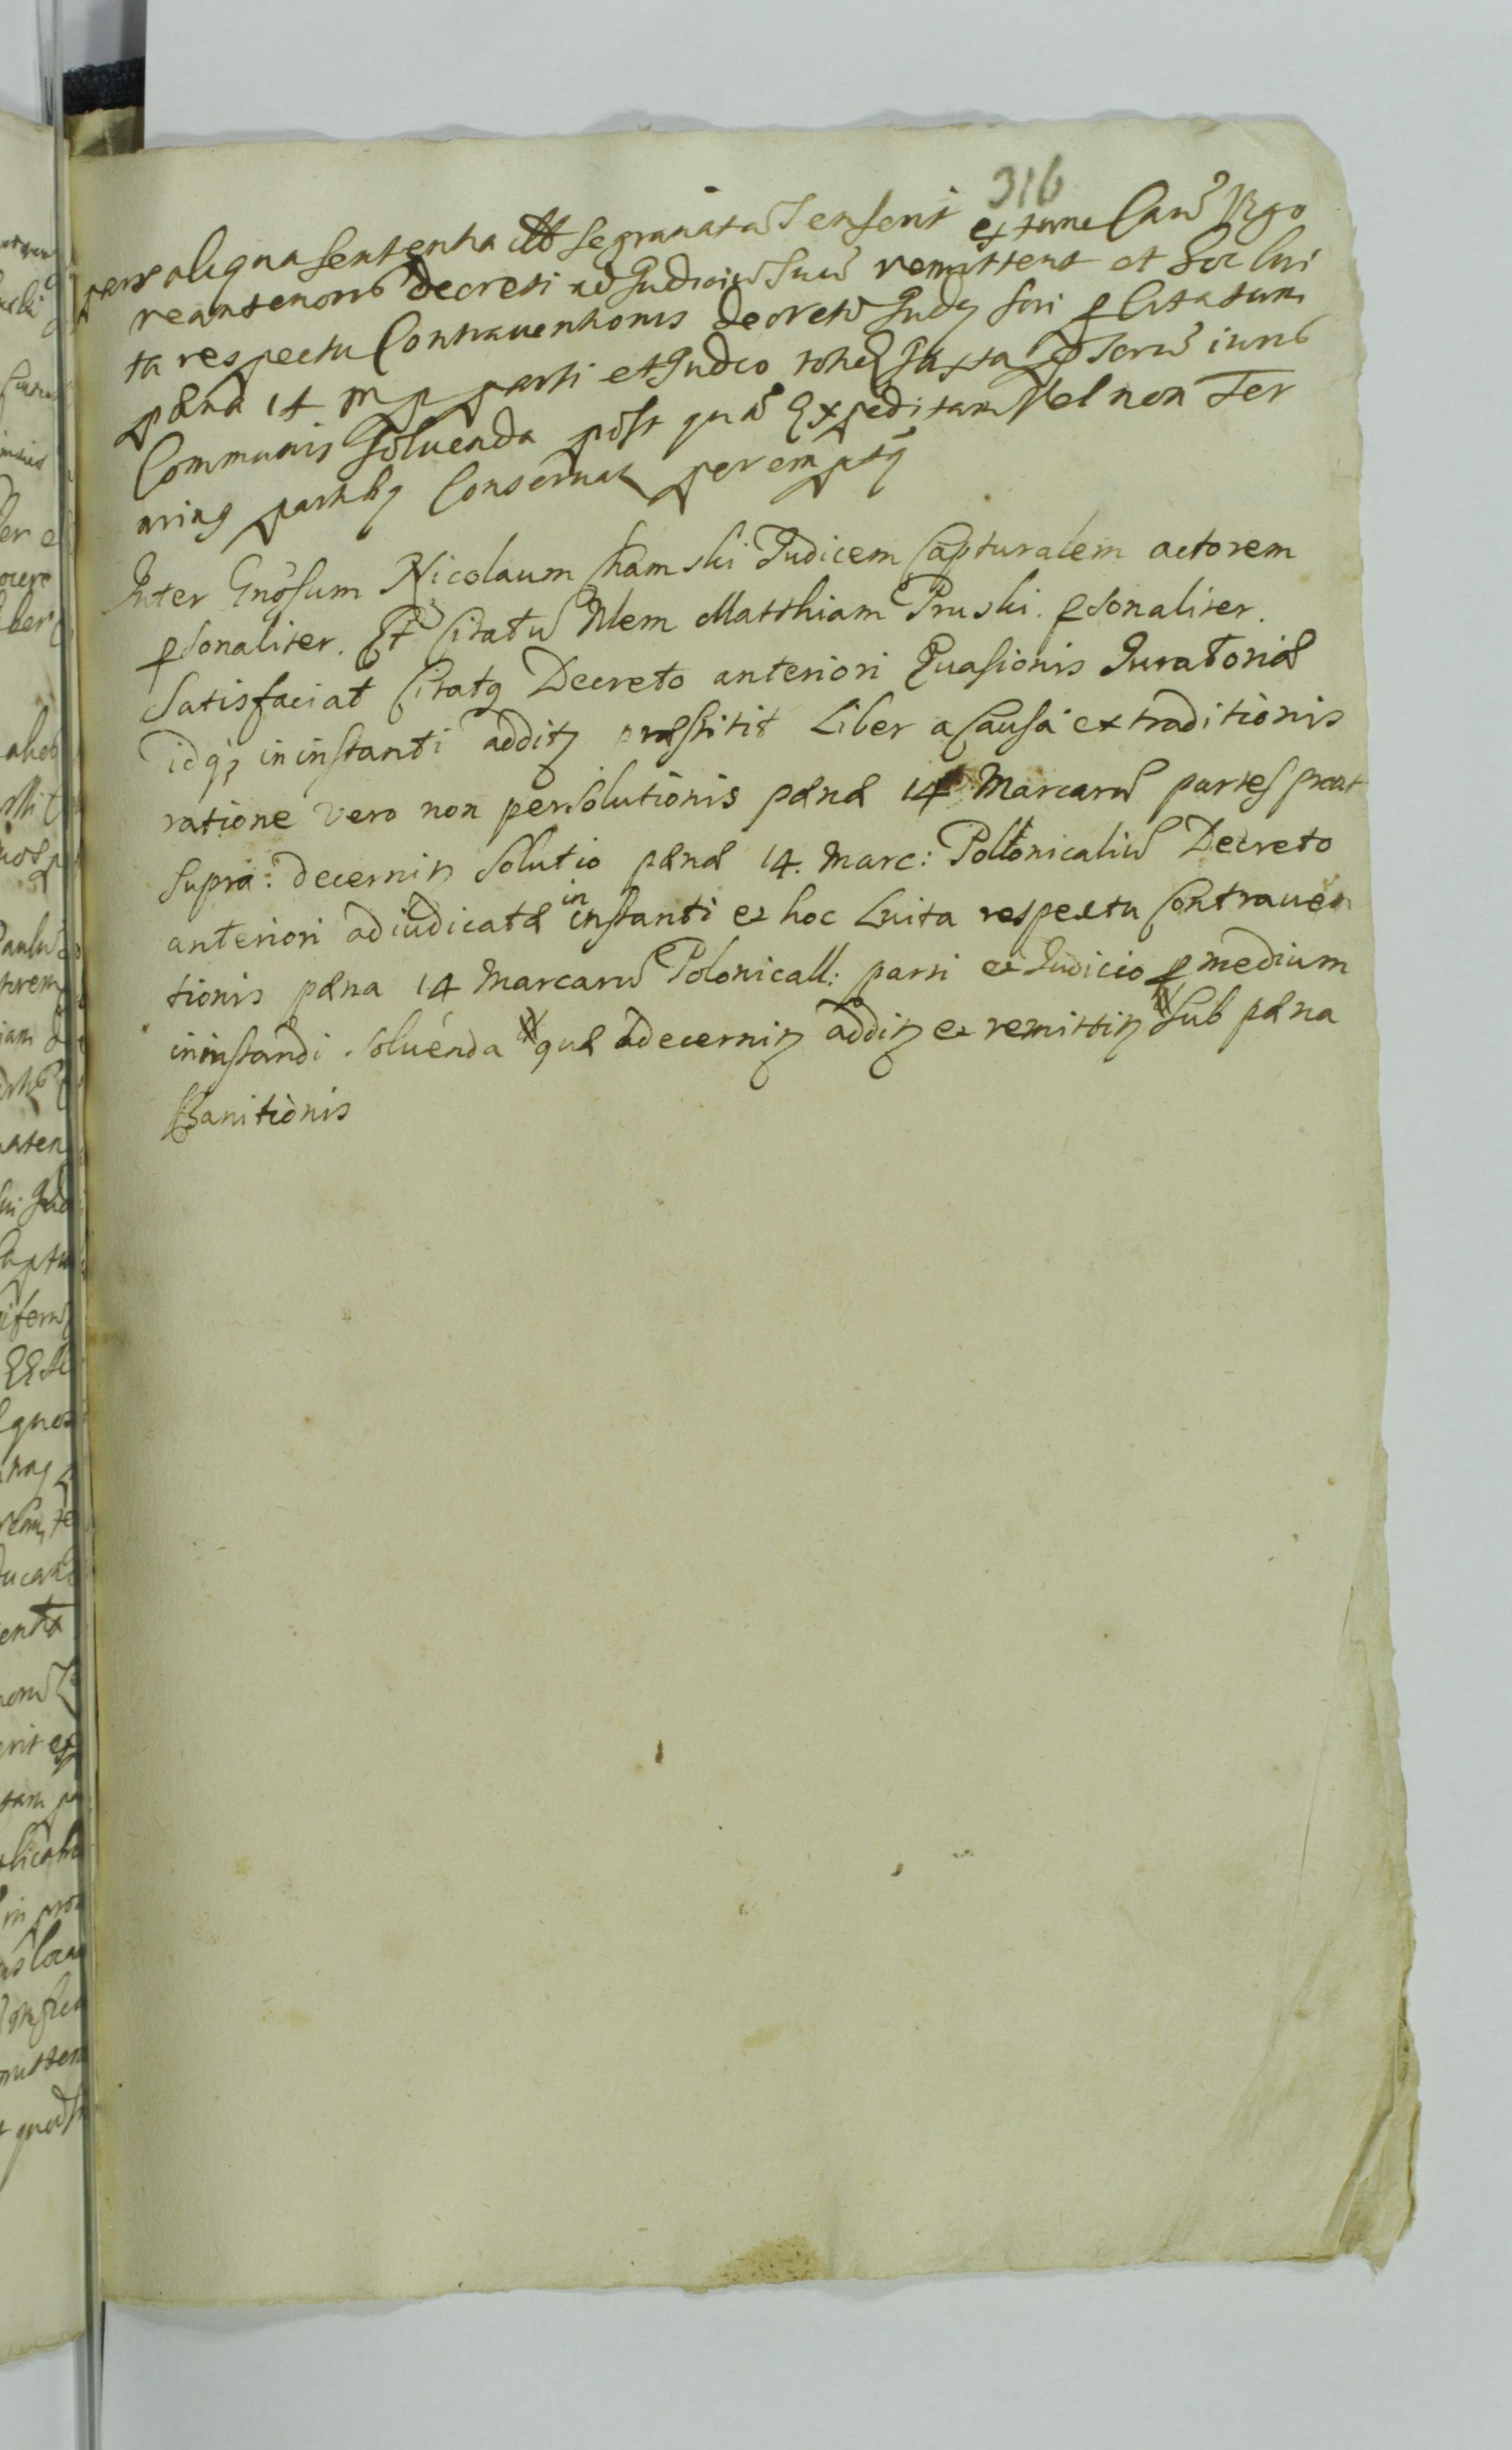 316
pars aliqua sententia se grauatã senserit extunc Causã Vigo
re anterioris decreti ad Judiciũ Suũ remittent et hoc lui
ta respectu Contrauentionis decretũ Judę fori ꝑ Citatum
pæna 14 m p parti et Judco toties juxta iuris
Communis Soluenda post quã Expeditam Vel non Ter
minus partibꝫ Conseruat peremptꝫ
Inter Gnõsum Nicolaum Chamski Judicem Capturalem actorem
ꝑsonaliter. Et Citatũ Nlem Matthiam Pruski ꝑsonaliter.
Satisfaciat Citatꝫ Decreto anteriori Euasionis Juratoriæ
idqꝫ in instanti additꝫ præstitit Liber a Causa extraditionis
ratione vero non persolutionis pænæ 14 Marcarũ partes prout
supra: decernitꝫ Solutio pænæ 14. Marc: Polonicaliũ Decreto
anteriori adiudicatæ in instanti et hoc Luita respectu Contrauen
tionis pæna 14 Marcarũ Polonicall: parti et Judicio ꝑ medium
in instanti soluenda quæ decernitꝫ additꝫ et remittitꝫ Sub pæna
Banitionis